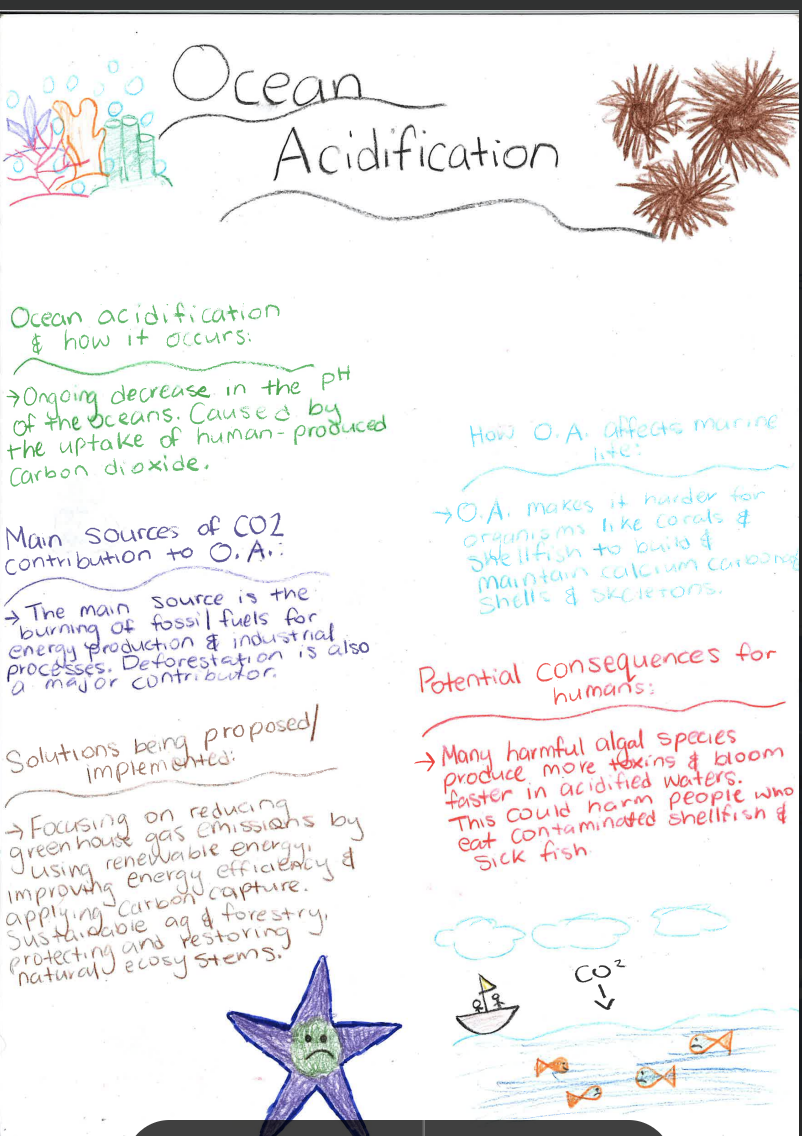 Ocean
Acidification
Ocean acidification
& how it occurs:
→Ongoing decrease in the pH
of the oceans. Caused by
the uptake of human-produced
Carbon dioxide.
Main sources of CO2
contribution to O.A.:
→ The main source is the
burning of fossil fuels for
energy production & industrial
processes. Deforestation is also
a major contributor.
Solutions being proposed/
implemented:
→ Focusing on reducing
greenhouse gas emissions by
using renewable energy,
improving energy efficiency &
applying carbon capture.
Sustainable ag & forestry,
protecting and restoring
natural ecosystems.
How O.A. affects marine
life:
→O.A. makes it harder for
organisms like corals &
shellfish to build &
maintain calcium carbonate
shells & skeletons.
Potential consequences for
humans:
→ Many harmful algal species
produce more toxins & bloom
faster in acidified waters.
This could harm people who
eat contaminated shellfish &
sick fish
CO²